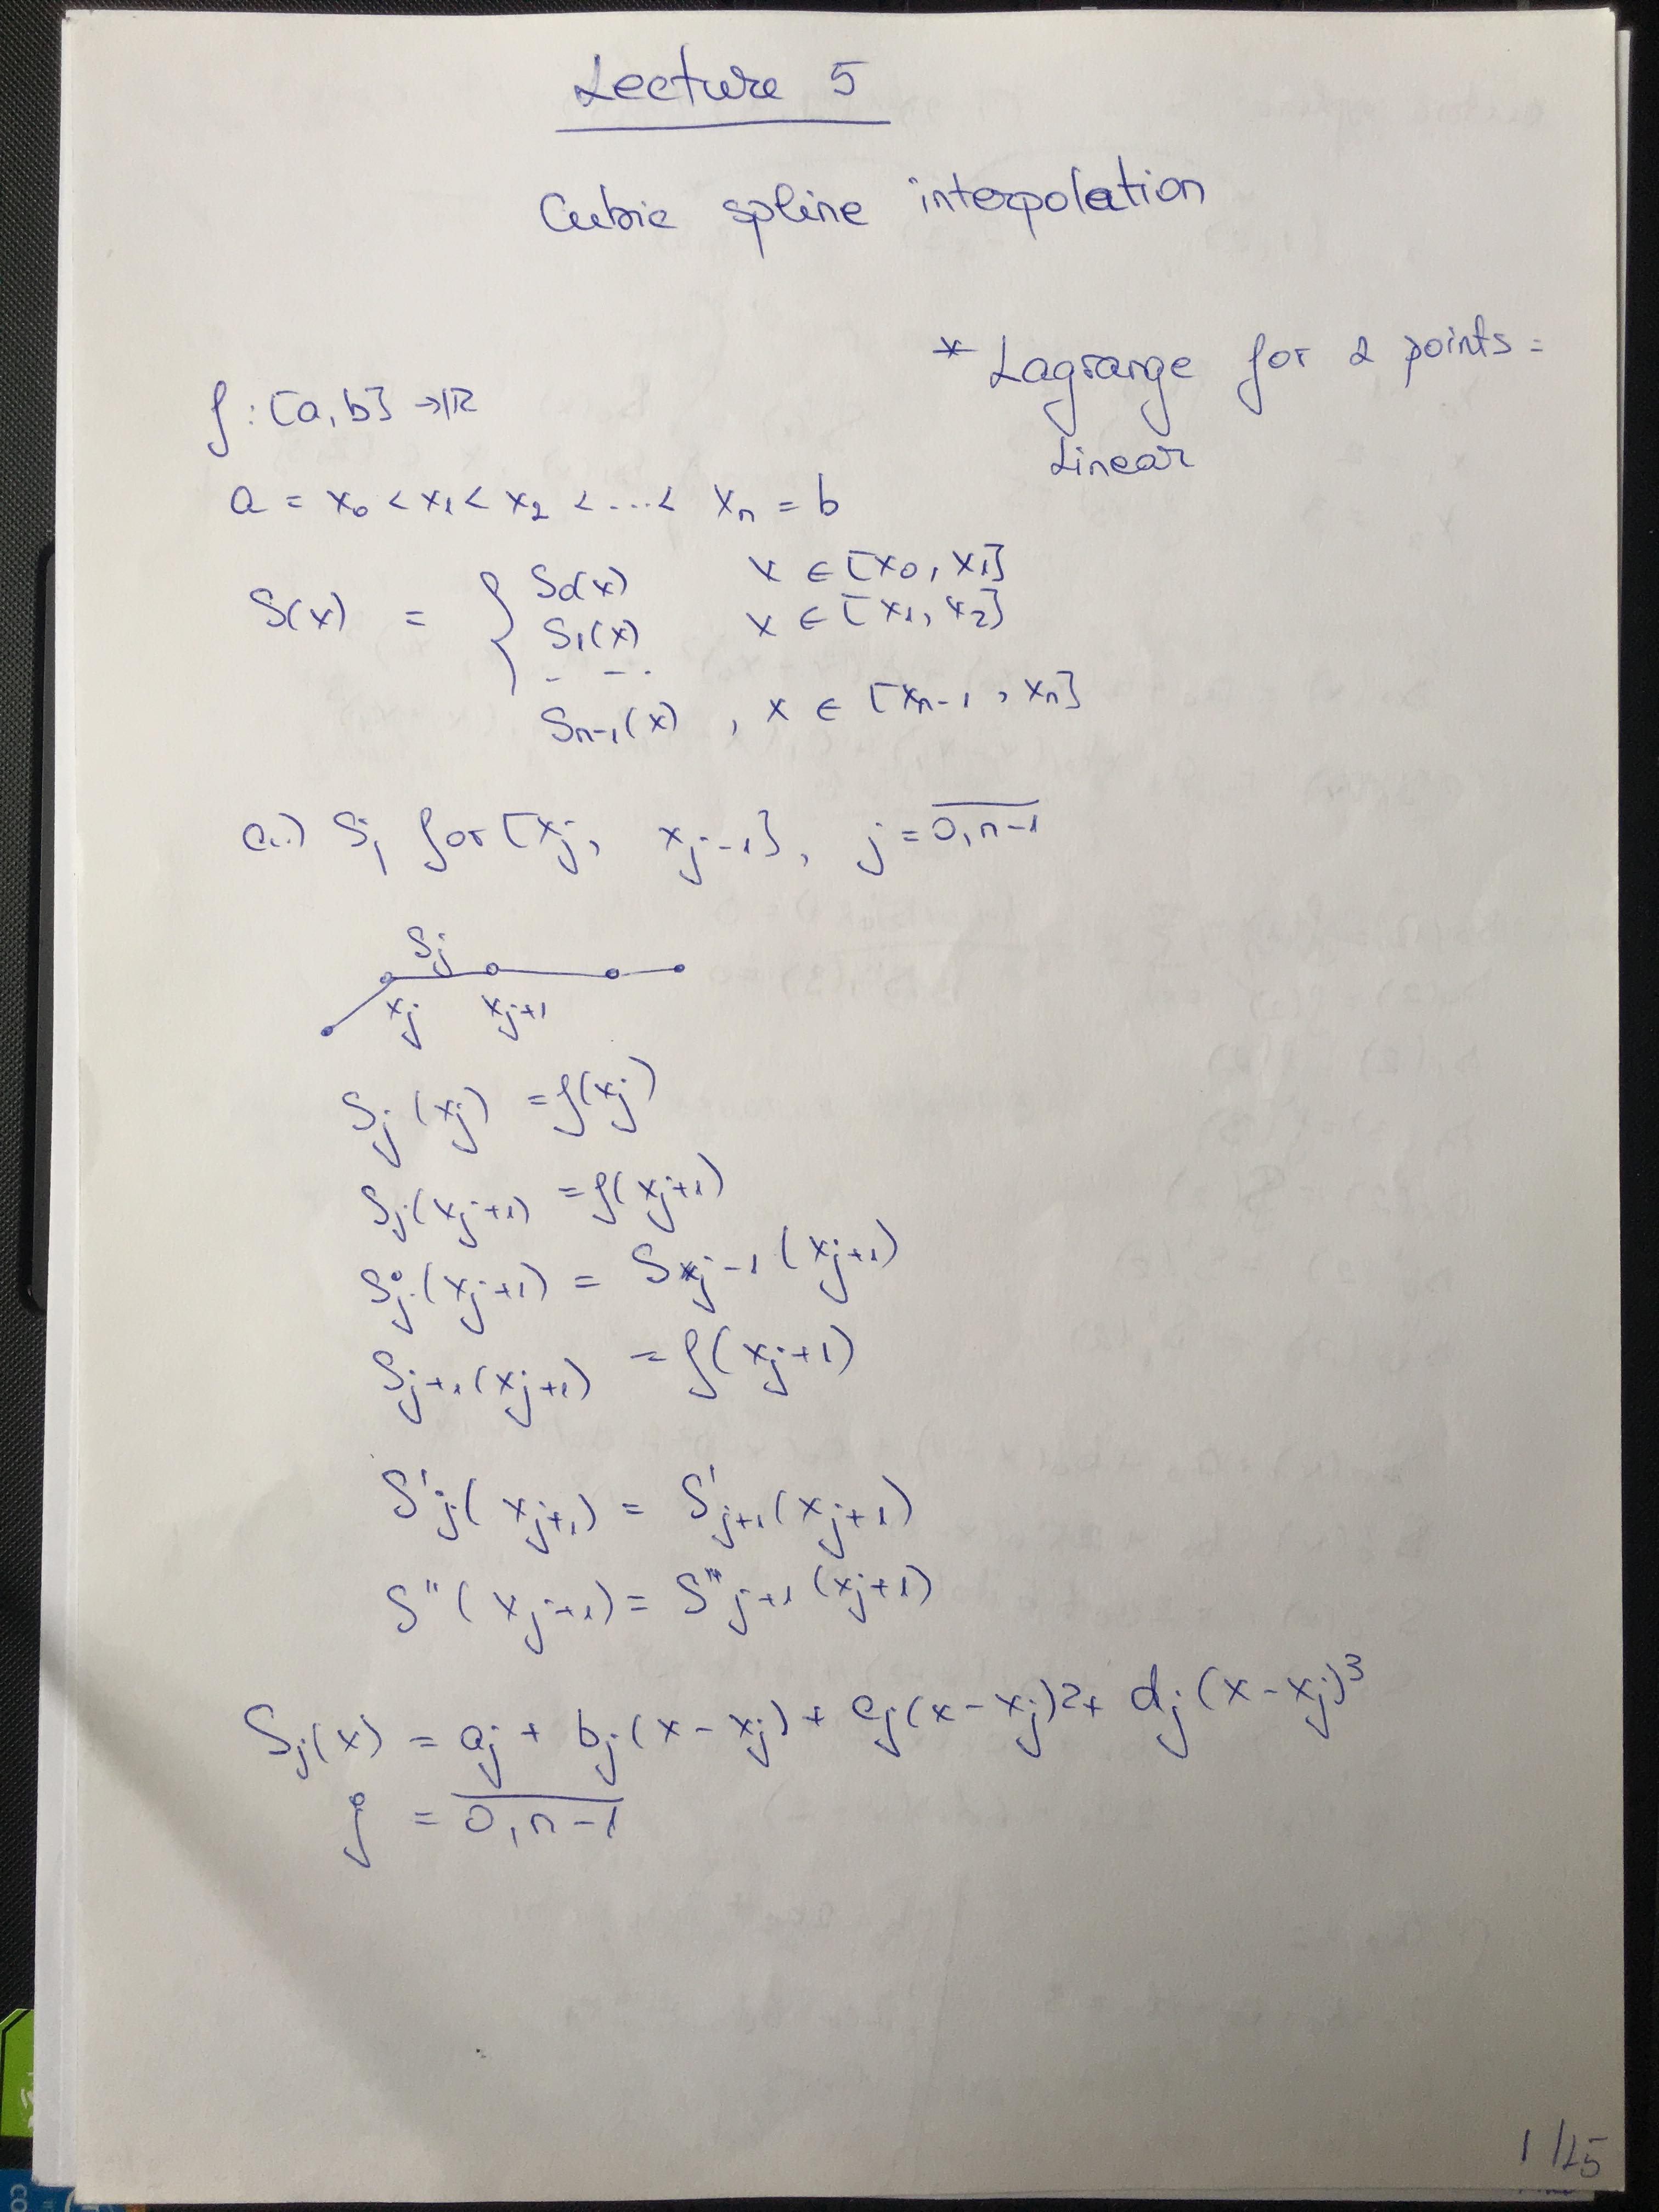 Lecture 5
Cubic spline interpolation
* Lagrange for 2 points =
Linear
f : [a, b] → ℝ
a = x₀ < x₁ < x₂ < ... < xₙ = b
S(x) = { S₀(x) x ∈ [x₀, x₁]
S₁(x) x ∈ [x₁, x₂]
- - .
Sₙ₋₁(x) , x ∈ [xₙ₋₁, xₙ]
a.) Sⱼ for [xⱼ, xⱼ₋₁], j = \overline{0, n-1}
Sⱼ
xⱼ xⱼ₊₁
Sⱼ(xⱼ) = f(xⱼ)
Sⱼ(xⱼ₊₁) = f(xⱼ₊₁)
Sⱼ(xⱼ₊₁) = Sⱼ₋₁(xⱼ₊₁)
Sⱼ₊₁(xⱼ₊₁) = f(xⱼ₊₁)
S'ⱼ(xⱼ₊₁) = S'ⱼ₊₁(xⱼ₊₁)
S''(xⱼ₊₁) = S''ⱼ₊₁(xⱼ₊₁)
Sⱼ(x) = aⱼ + bⱼ(x - xⱼ) + cⱼ(x - xⱼ)² + dⱼ(x - xⱼ)³
j = \overline{0, n-1}
1/L5